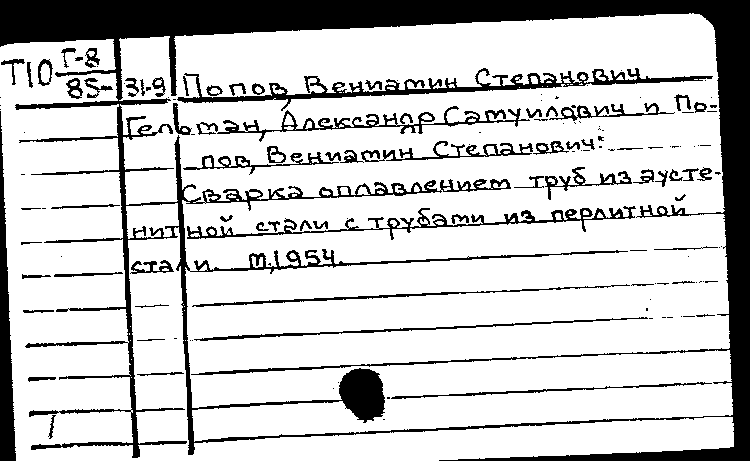 Т10 Г-8/85- 31-9 Попов, Вениамин Степанович.
Гельман, Александр Самуилович и По-
пов, Вениамин Степанович:
Сварка оплавлением труб из аусте-
нитной стали с трубами из перлитной
стали. М, 1954.